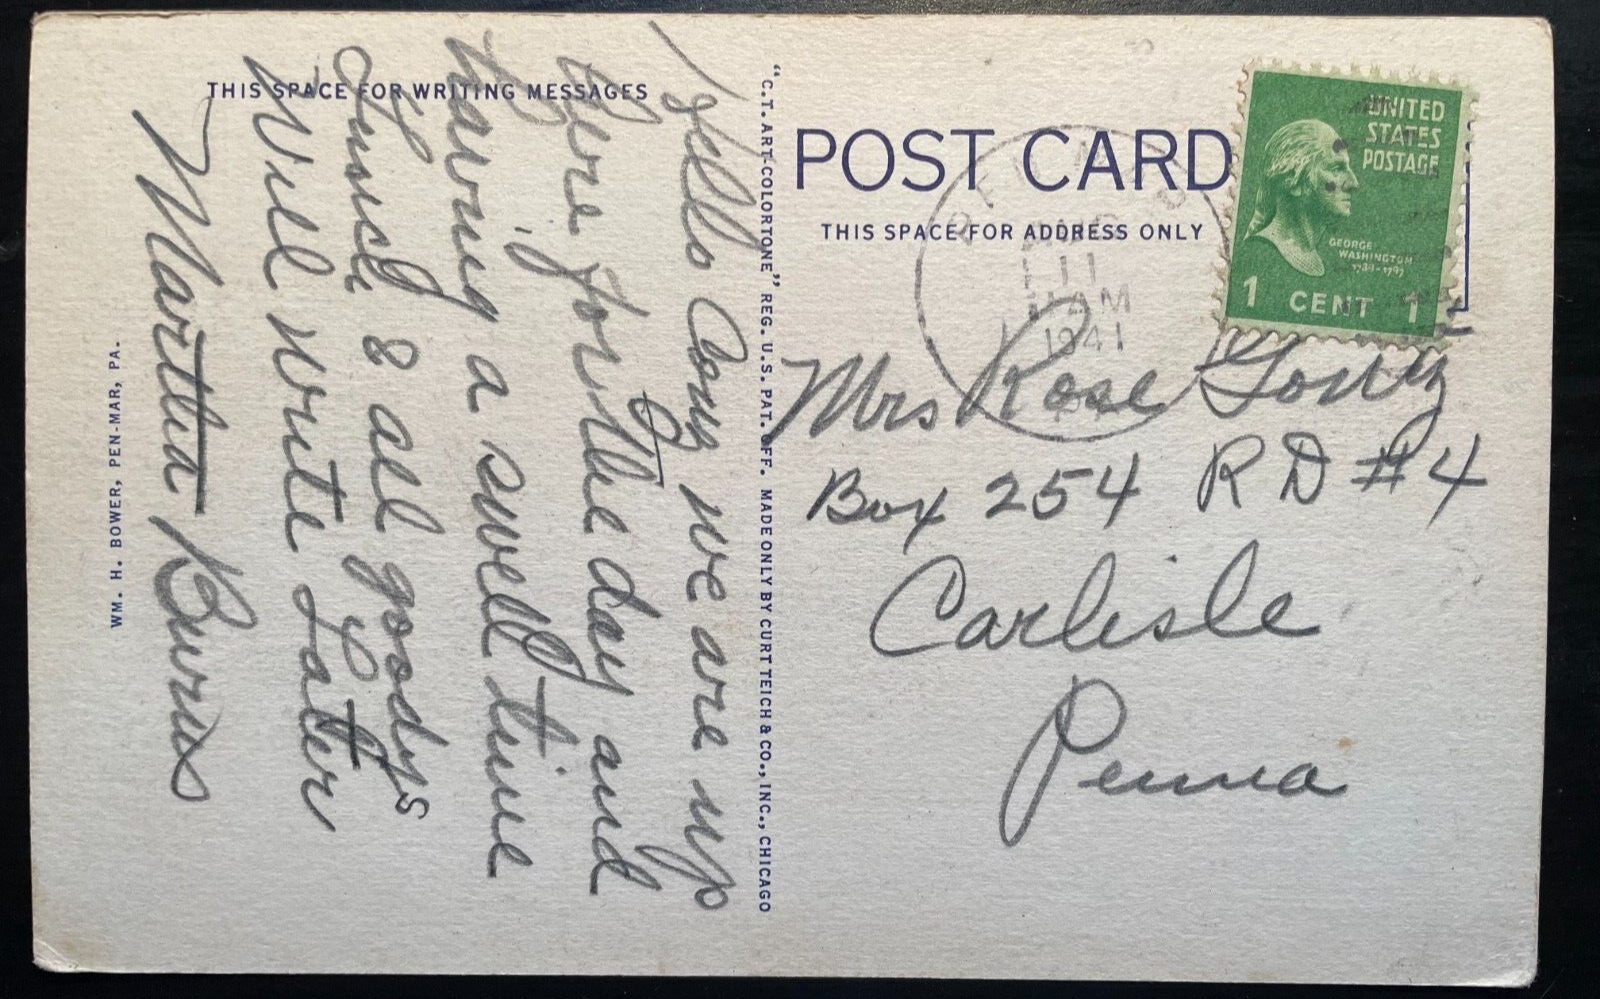 THIS SPACE FOR WRITING MESSAGES
Hello Cong we are up
here for the day and
having a swell time
Lunch & all goodys
Will write Later
Martha Burns
WM. H. BOWER, PEN-MAR, PA.
"C.T. ART-COLORTONE" REG. U.S. PAT. OFF. MADE ONLY BY CURT TEICH & CO., INC., CHICAGO
POST CARD
THIS SPACE FOR ADDRESS ONLY
11
AM
1941
UNITED
STATES
POSTAGE
GEORGE
WASHINGTON
1789-1797
1 CENT 1
Mrs Rose
Box 254 R D #4
Carlisle
Penna